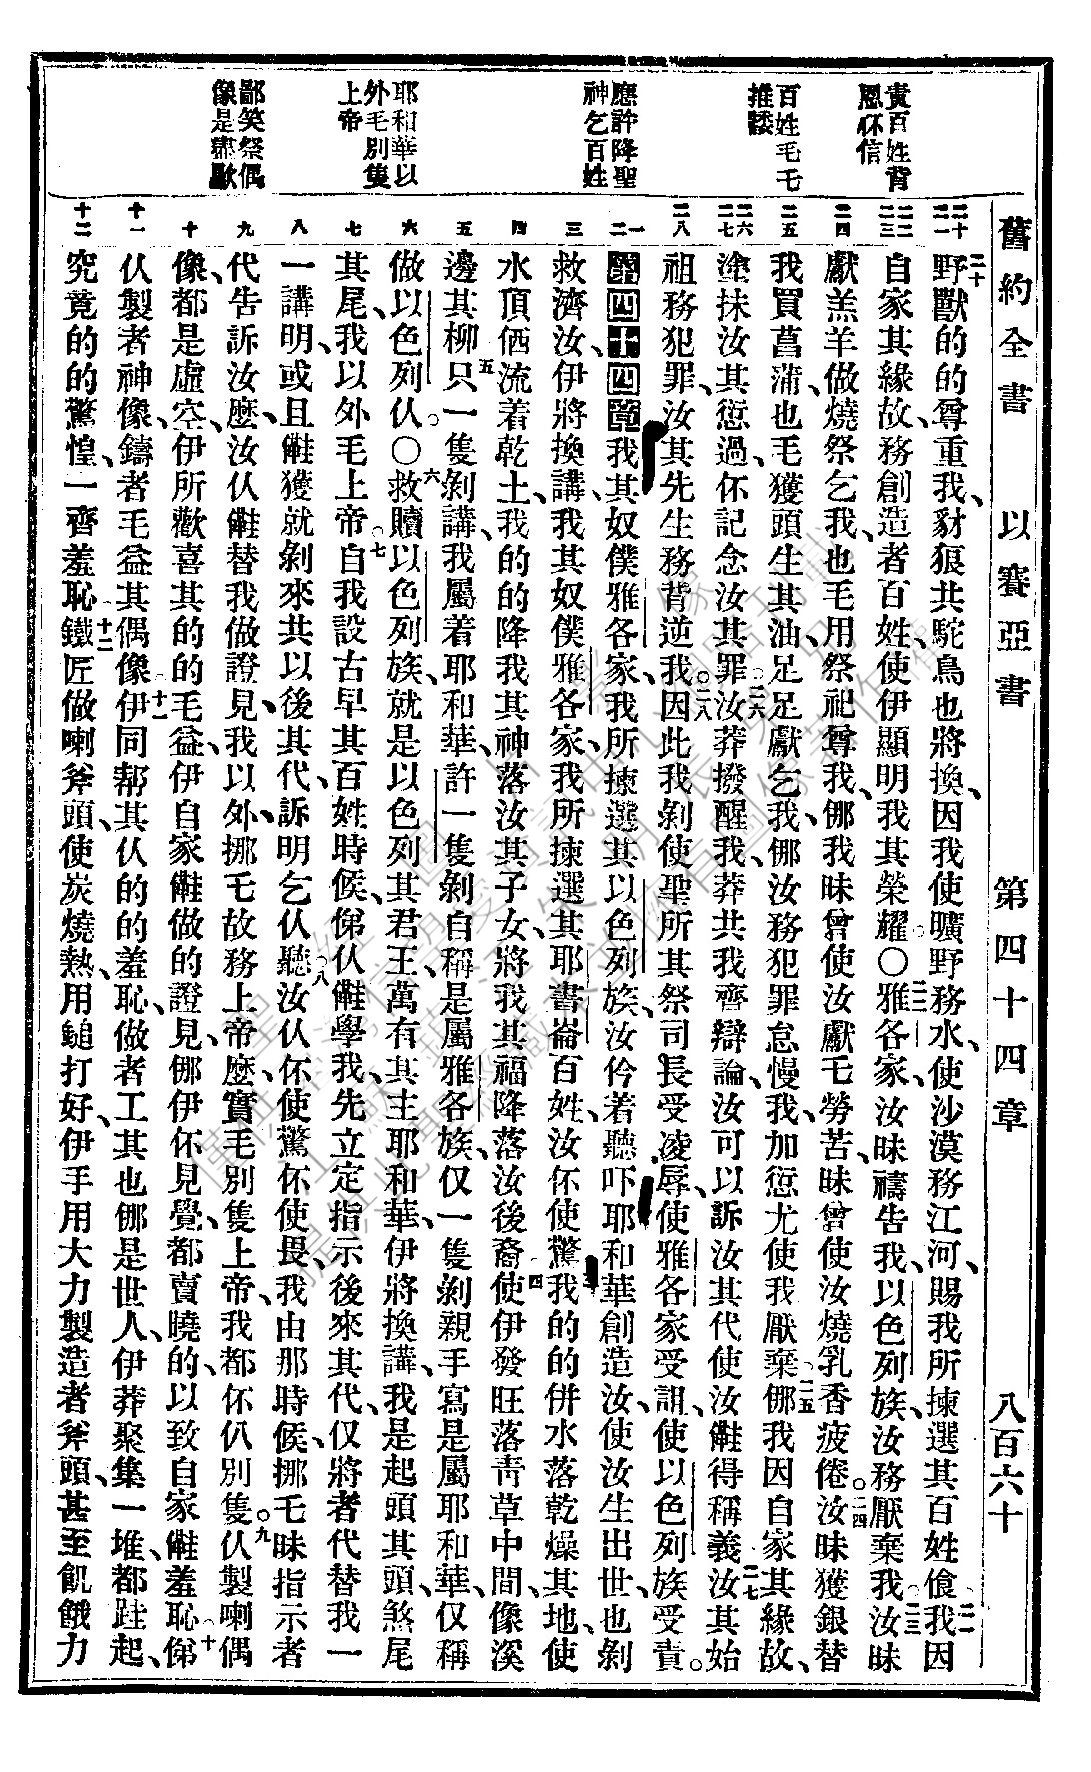 舊約全書 以賽亞書 第四十四章 八百六十
責百姓背
恩怀信
百姓毛乇
推諉
應許降聖
神乞百姓
耶和華以
外毛別隻
上帝
鄙笑祭偶
像是痴獃
野獸的的尊重我、豺狼共駝鳥也將換、因我使曠野務水、使沙漠務江河、賜我所揀選其百姓飡我因
自家其緣故、務創造者百姓、使伊顯明我其榮耀。〇雅各家、汝昧禱告我、以色列族、汝務厭棄我、汝昧
獻羔羊做燒祭乞我、也毛用祭祀尊我、倻我昧曾使汝獻乇勞苦、昧曾使汝燒乳香疲倦。汝昧獲銀替
我買菖蒲、也毛獲頭生其油、足足獻乞我、倻汝務犯罪怠慢我、加愆尤使我厭棄。倻我因自家其緣故、
塗抹汝其愆過、怀記念汝其罪。汝莽撥醒我、莽共我齊辯論、汝可以訴汝其代、使汝𣍐得稱義。汝其始
祖務犯罪、汝其先生務背逆我。因此我剝使聖所其祭司長受凌辱、使雅各家受詛、使以色列族受責。
第四十四章我其奴僕雅各家、我所揀選其以色列族、汝仱着聽吓。耶和華創造汝、使汝生出世、也剝
救濟汝、伊將換講、我其奴僕雅各家、我所揀選其耶書崙百姓、汝怀使驚。我的的併水落乾燥其地、使
水頂𠊁流着乾土、我的的降我其神落汝其子女、將我其福降落汝後裔。使伊發旺落靑草中間、像溪
邊其柳只一隻剝講、我屬着耶和華、許一隻剝自稱是屬雅各族、仅一隻剝親手寫是屬耶和華、仅稱
做以色列仈。〇救贖以色列族、就是以色列其君王、萬有其主耶和華、伊將換講、我是起頭其頭、煞尾
其尾、我以外毛上帝。自我設古早其百姓時候、俤仈𠆧學我、先立定指示後來其代、仅將者代替我一
一講明、或且𠆧獲就剝來共以後其代、訴明乞仈聽。汝仈怀使驚怀使畏、我由那時候、挪乇昧指示者
代告訴汝麽、汝仈𠆧替我做證見、我以外挪乇故務上帝麽、實毛別隻上帝、我都怀仈別隻。仈製喇偶
像、都是虛空、伊所歡喜其的的毛益、伊自家𠆧做的證見、倻伊怀見覺、都賣曉的、以致自家𠆧羞恥。俤
仈製者神像、鑄者毛益其偶像、伊同幫其仈的的羞恥、做者工其也倻是世人、伊莽聚集一堆、都跬起、
究竟的的驚惶、一齊羞恥。鐵匠做喇斧頭、使炭燒熱、用鎚打好、伊手用大力製造者斧頭、甚至飢餓力